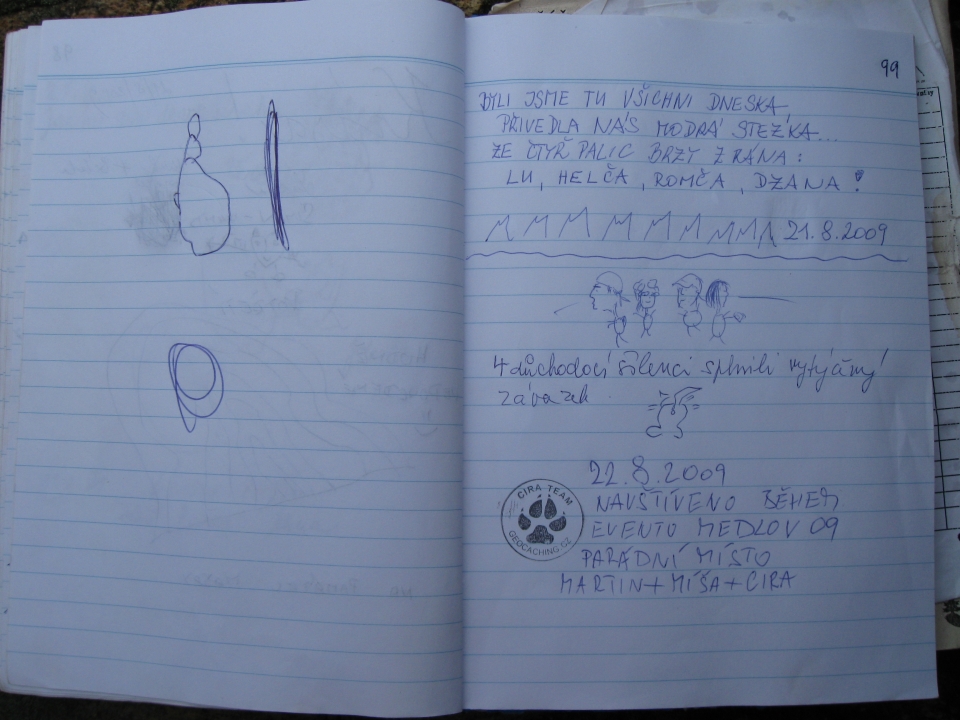 99
BYLI JSME TU VŠICHNI DNESKA
PŘIVEDLA NÁS MODRÁ STEZKA...
ZE ČTYŘ PALIC BRZY ZRÁNA:
LU, HELČA, ROMČA, DŽANA!
21.8.2009
4 důchodocí šílenci splnili vytýčený
závazek.
22.8.2009
NAVŠTÍVENO BĚHEM
EVENTU MEDLOV 09
PARÁDNÍ MÍSTO
MARTIN+MÍŠA+CIRA
CIRA TEAM
GEOCACHING.CZ